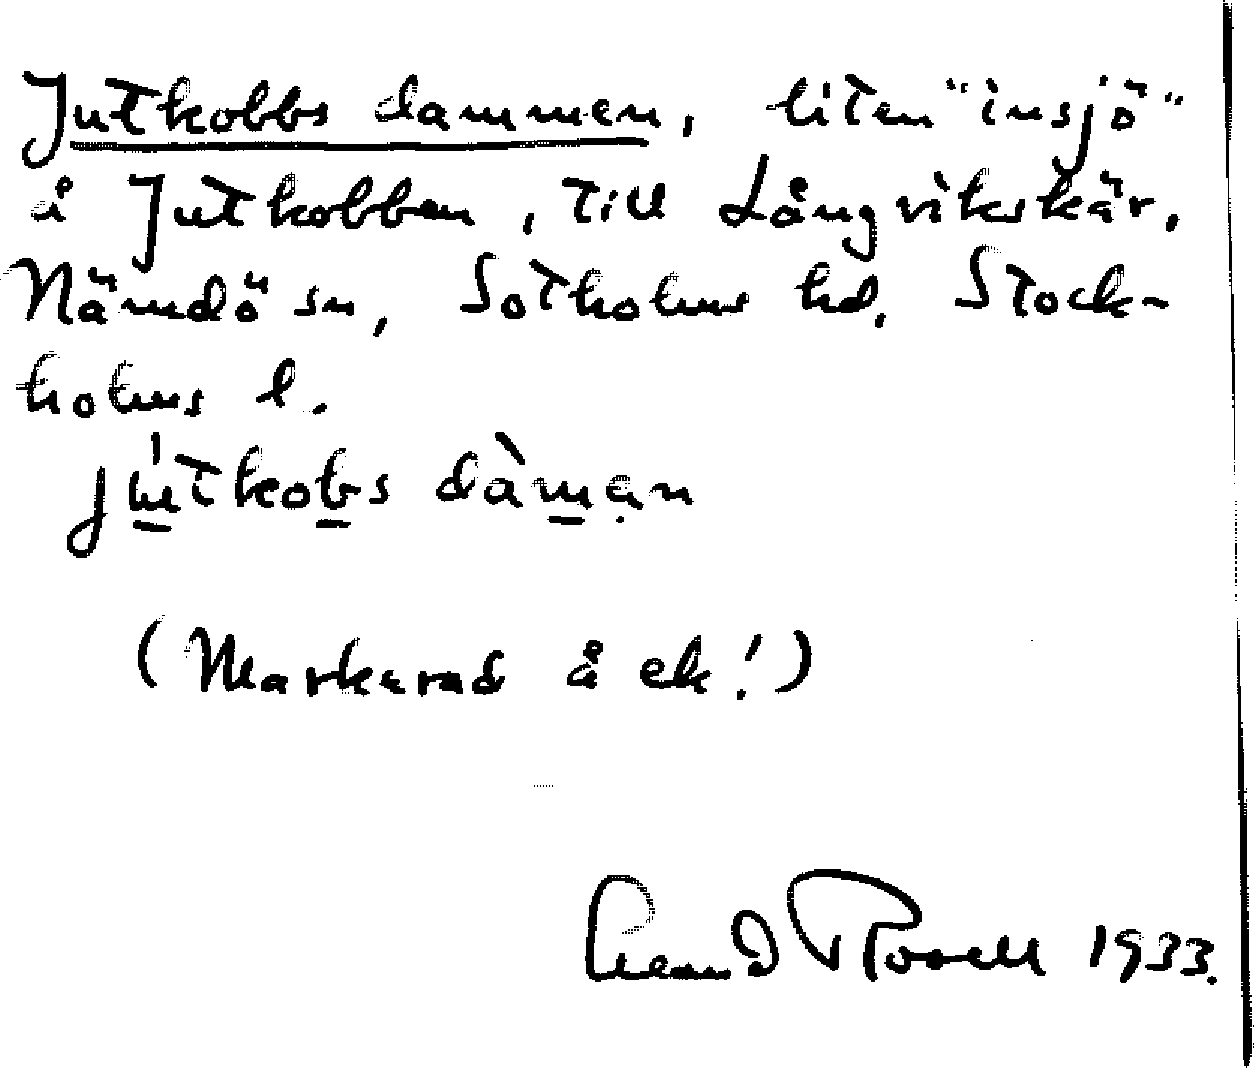 Jutkobbs dammen, liten "insjö"
å Jutkobben, till Långvikskär,
Nämdö sn, Sotholms hd, Stock-
holms l.
jútkobs dàman
(Markerad å ek!)
1933.